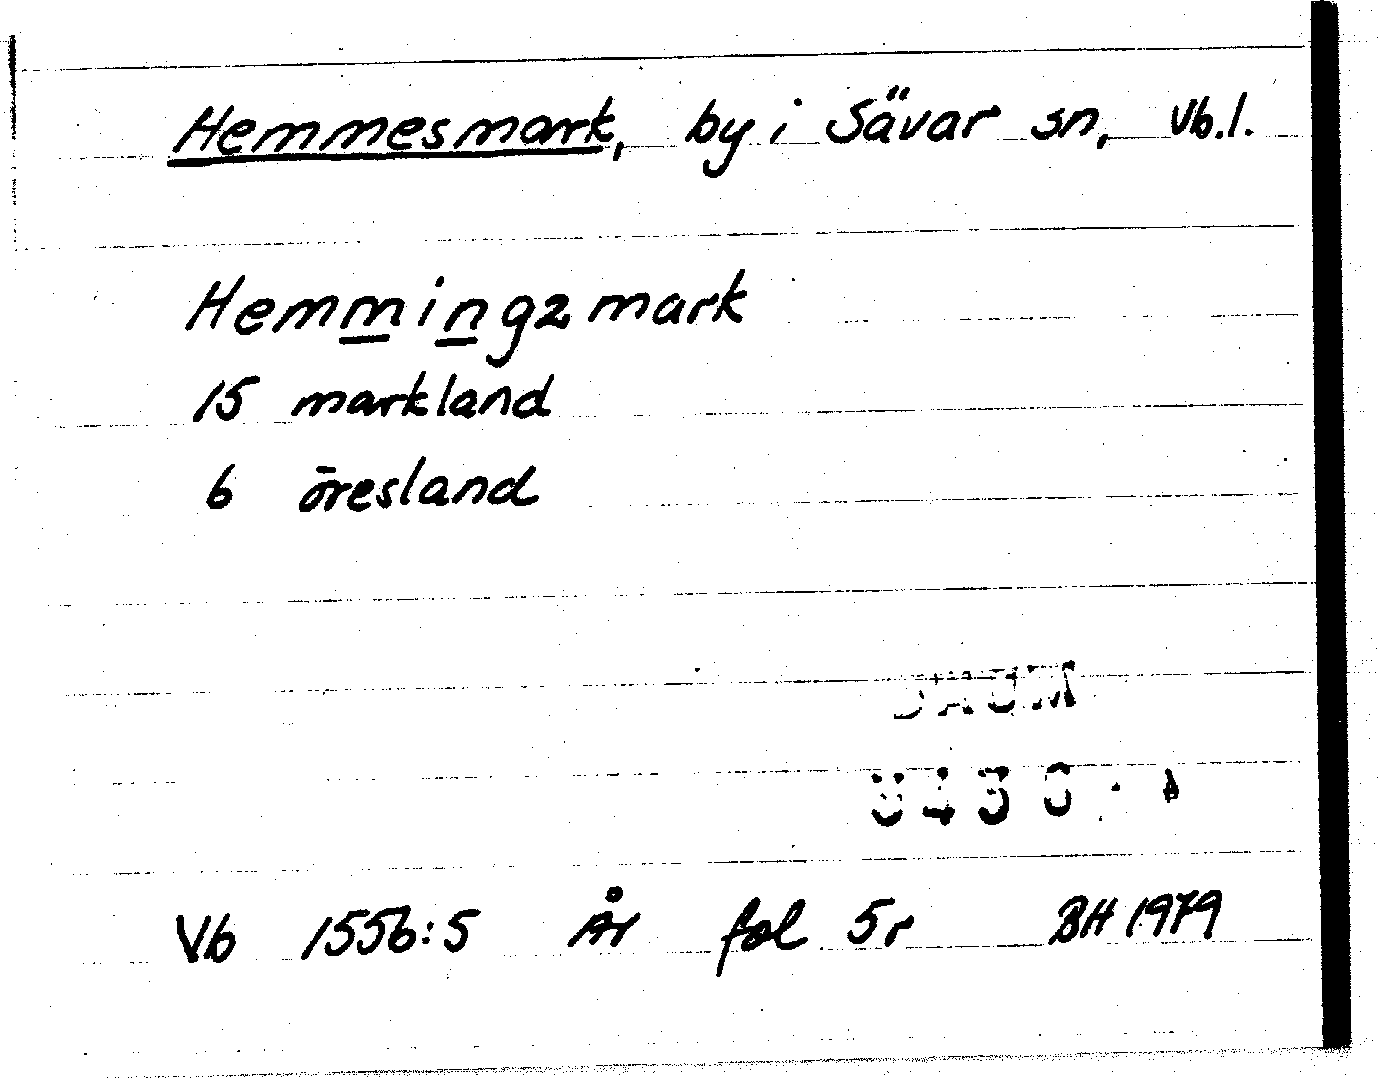 Hemmesmark, by i Sävar sn, Vb.l.
Hemmingzmark
15 markland
6 öresland
DAUM
Vb 1556:5 År fol 5r BH 1979